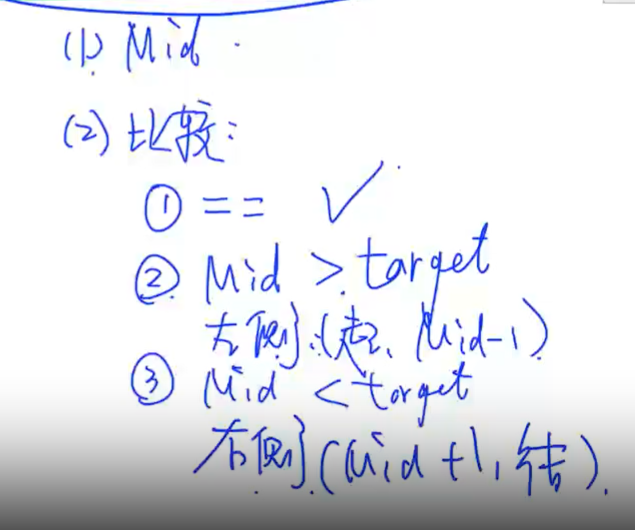 (1) Mid
(2) 比较:
① == ✓
② Mid > target
左侧:(起、Mid-1)
③ Mid < target
右侧(Mid+1,结)